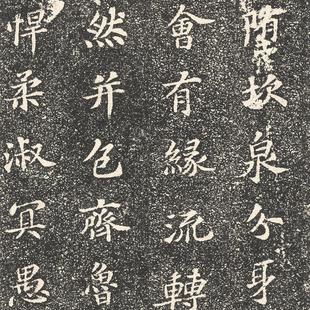 隋坎泉分身
會有緣流轉
然并包齊魯
悍柔淑冥愚